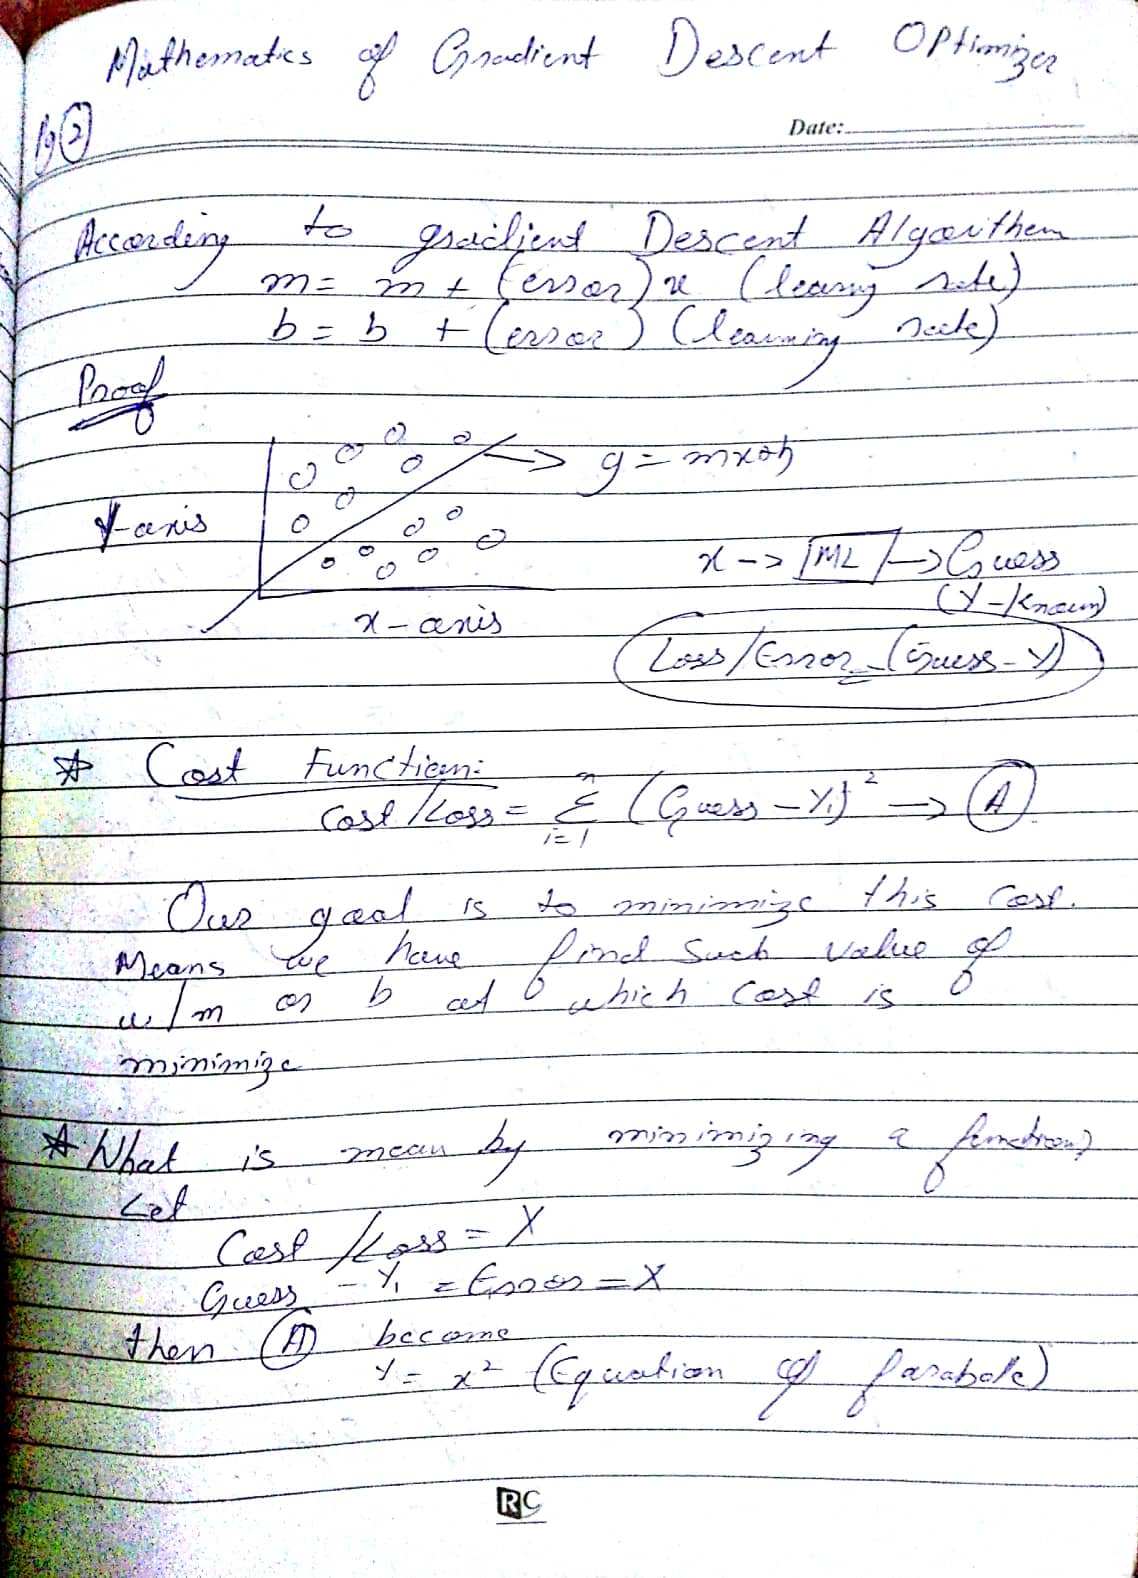 Mathematics of Gradient Descent Optimizer
Pg 2
Date:
According to gradient Descent Algorithem
m = m + (error) x (learing rate)
b = b + (error) (learning rate)
Proof
y = mx+b
Y-axis
x -> ML -> Guess
(Y-Known)
x-axis
Loss/Error = (Guess - Y)
* Cost Function:
Cost/Loss = Σ i=1 n (Guess - Yi)² → A
Our goal is to minimize this Cost.
Means we have find Such value of
w/m or b at which Cost is
minimize
* What is mean by minimizing a function?
Let
Cost/Loss = Y
Guess - Yi = Error = X
then A become
Y = x² (Equation of Parabola)
RC